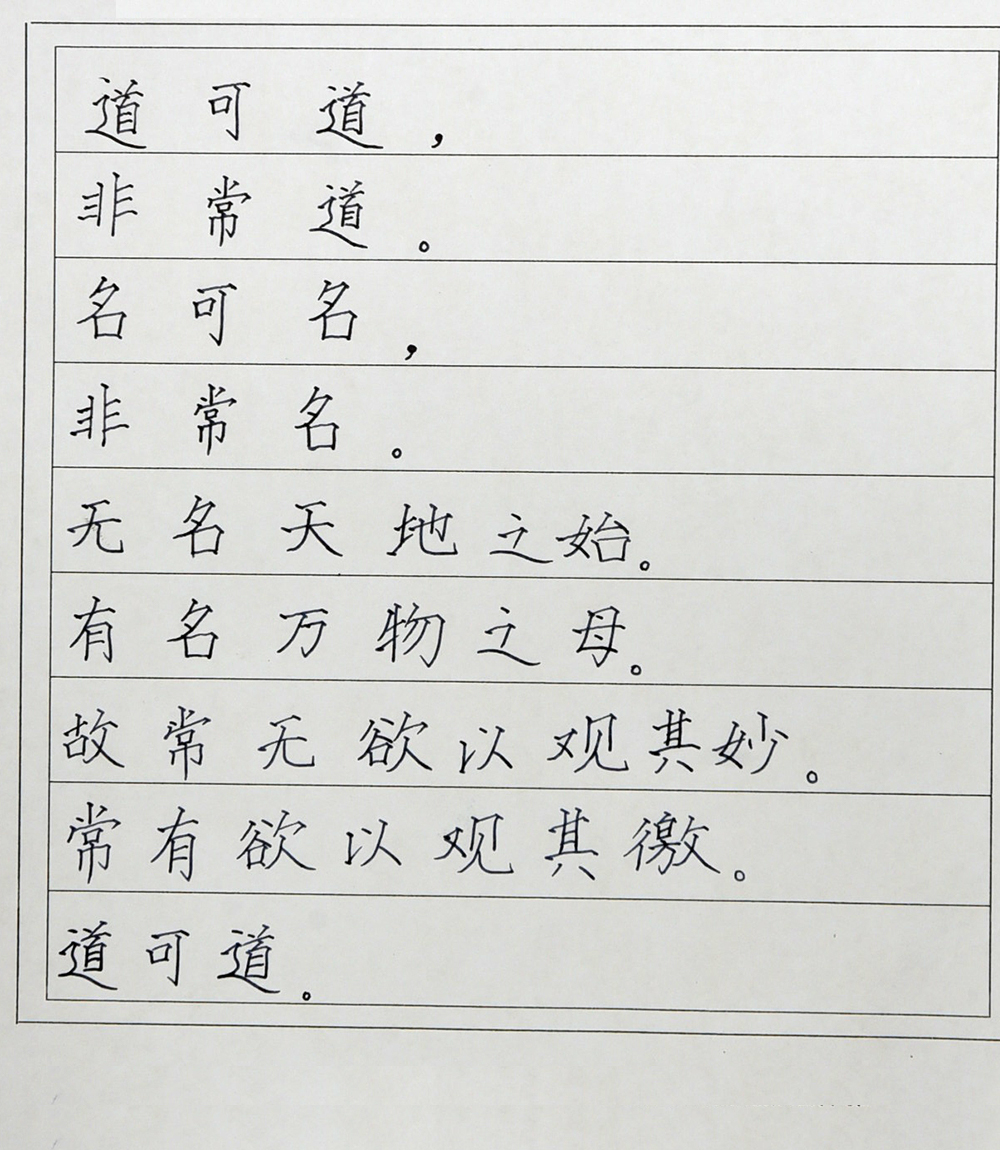 道可道，
非常道。
名可名，
非常名。
无名天地之始。
有名万物之母。
故常无欲以观其妙。
常有欲以观其徼。
道可道。